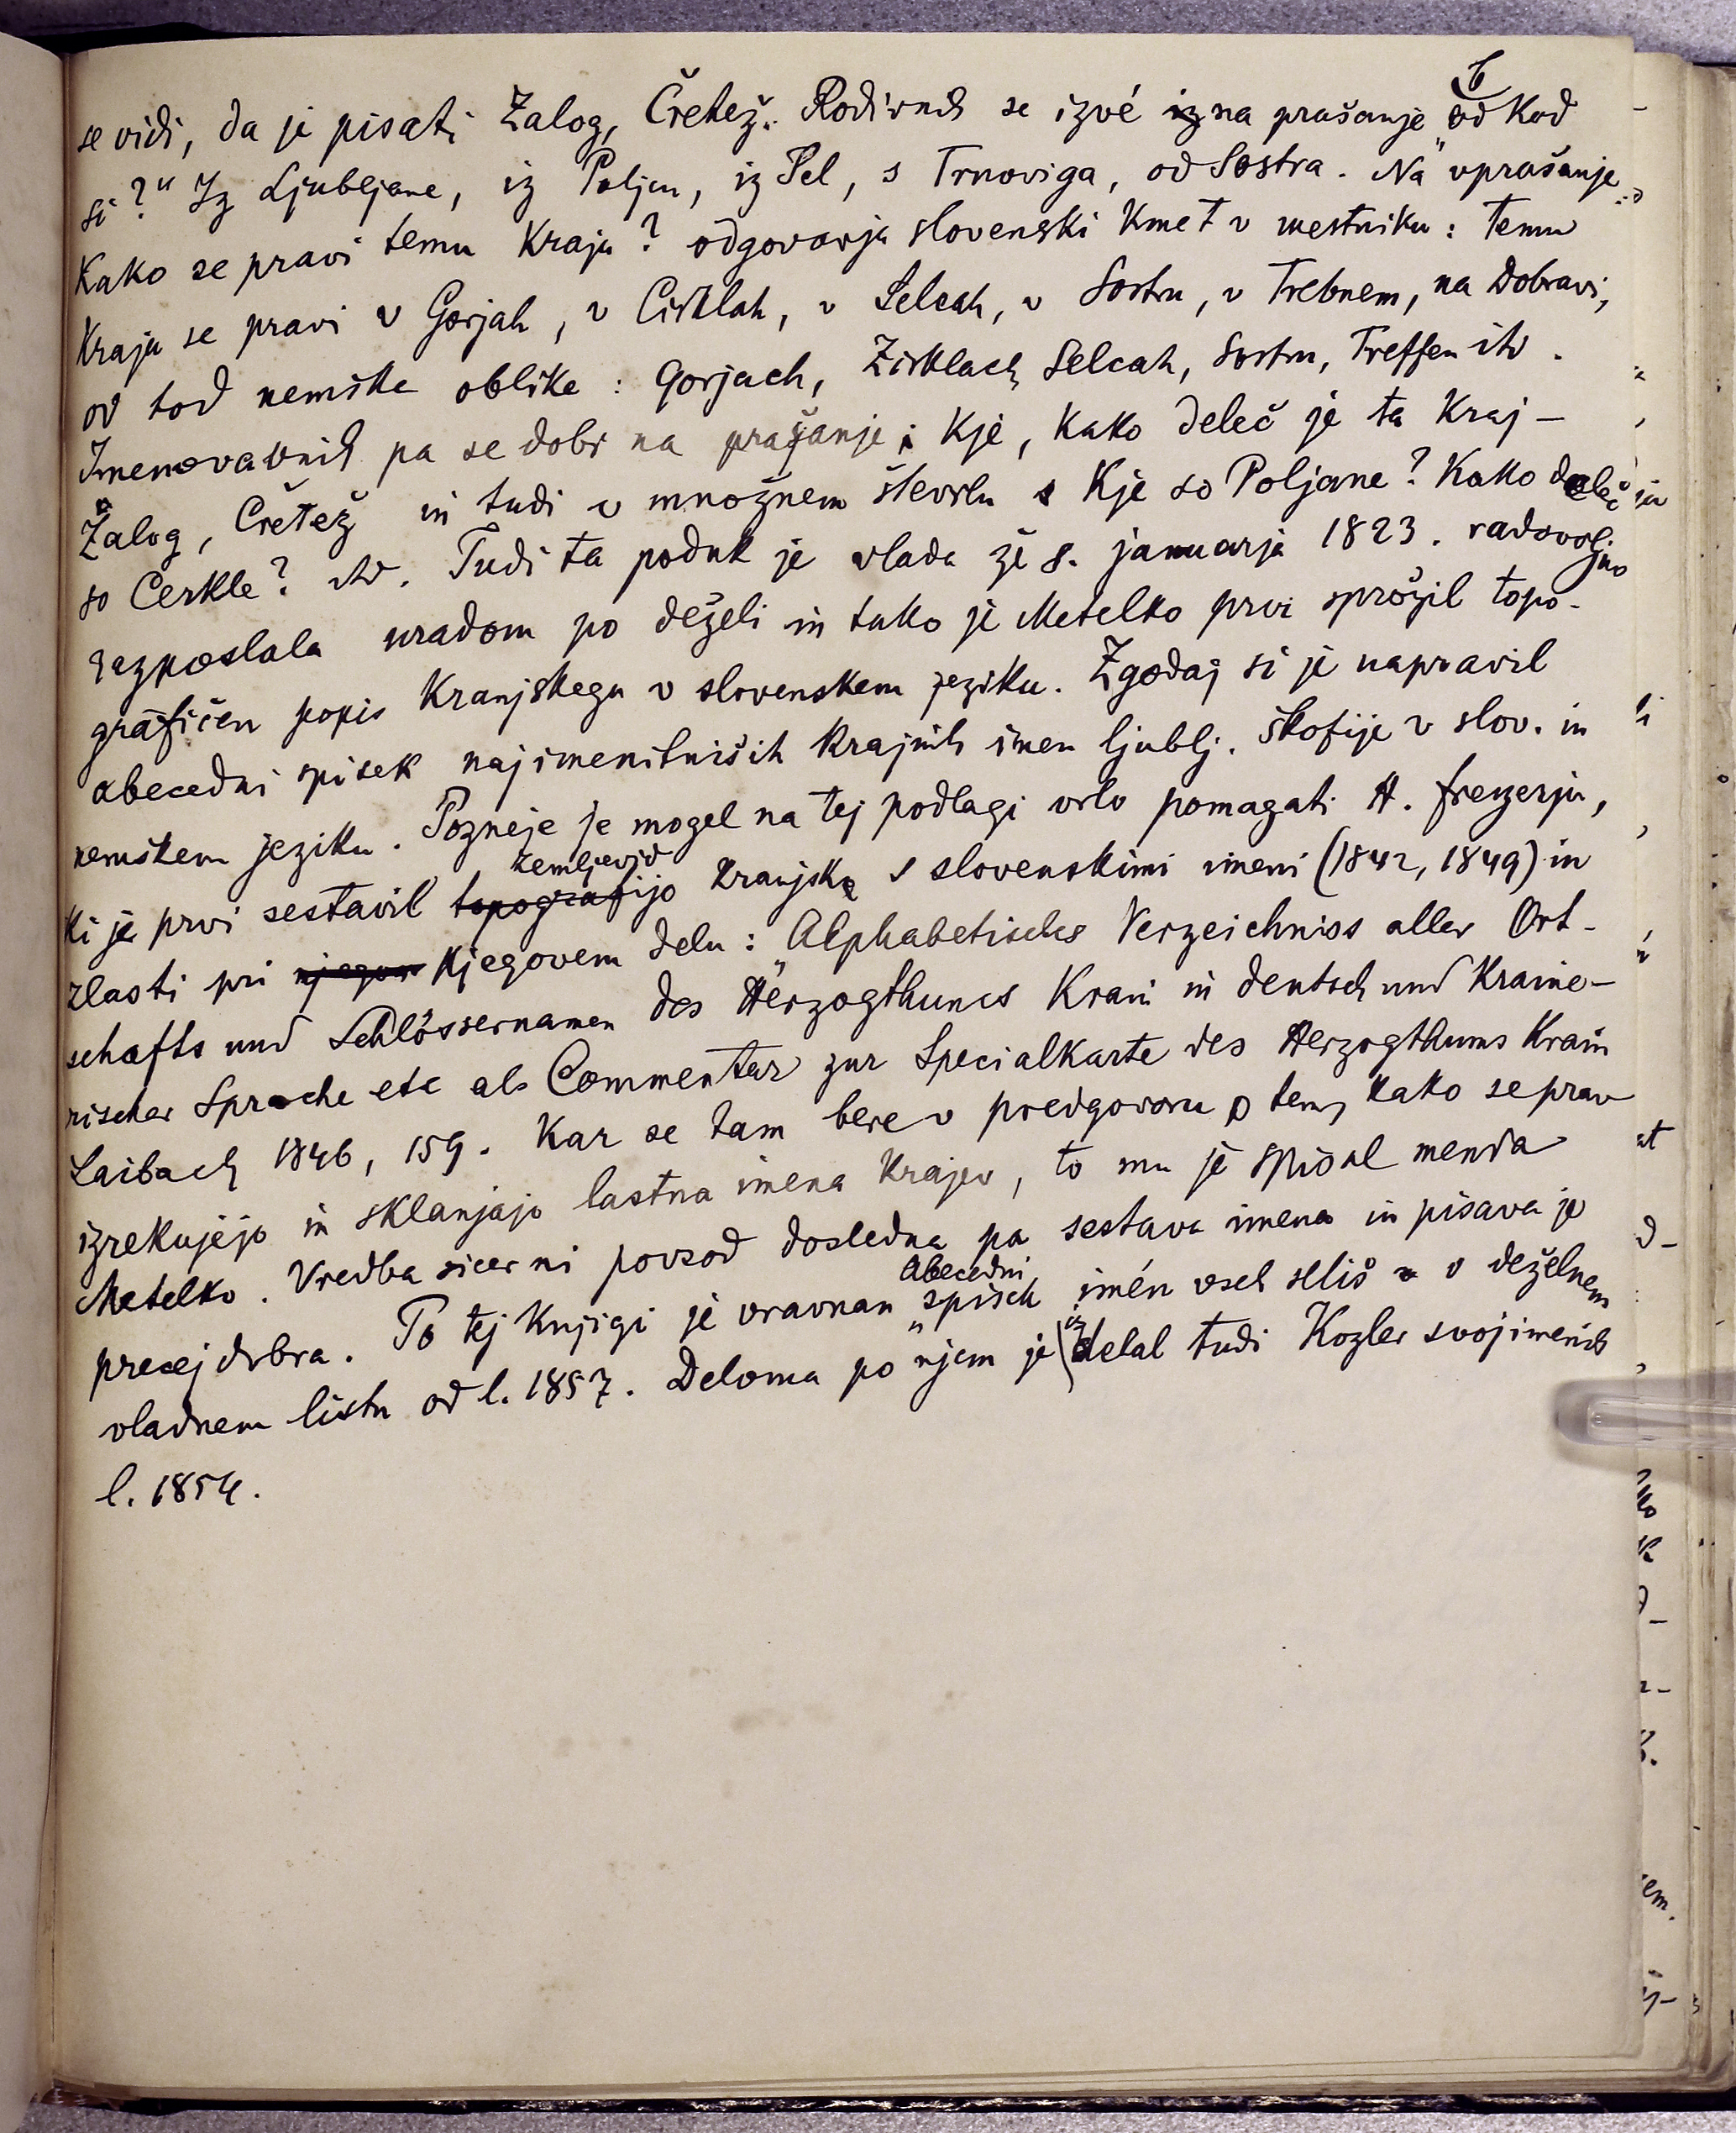 se vidi, da je pisati Zalog, Čretež. Rodivnik se izvé iz na prašanje „od kod
si?“ Iz Ljubljane, iz Poljan, iz Sel, s Trnoviga, od Sostra. Na vprašanje
Kako se pravi temu kraju? odgovarja slovenski kmet v mestniku: temu
kraju se pravi v Gorjah, v Cirklah, v Selcah, v Sostru, v Trebnem, na Dobravi,
od tod nemške oblike: Gorjach, Zirklach, Selcah, Sostru, Treffen itd.
Imenovavnik pa se dobi na prašanje: Kje, kako deleč je ta kraj –
Zalog, Čretež in tudi v množnem številu: Kje so Poljane? Kako deleč
so Cerkle? itd. Tudi ta poduk je vlada že 8. januarja 1823. radovoljno
razposlala uradom po deželi in tako je Metelko prvi sprožil topo-
grafičen popis Kranjskega v slovenskem jeziku. Zgodaj si je napravil
abecedni spisek najimenitniših krajnih imen ljublj. škofije v slov. in
nemškem jeziku. Pozneje je mogel na tej podlagi vrlo pomagati H. Freyerju,
zemljevid
ki je prvi sestavil topografijo Kranjske s slovenskimi imeni (1842, 1849) in
zlasti pri njegov njegovem delu: „Alphabetisches Verzeichniss aller Ort-
schafts und Schlössernamen des Herzogthumes Krain in deutsch und Kraine-
rischer Sprache etc als Commentar zur Specialkarte des Herzogthums Krain
Laibach 1846, 159. Kar se tam bere v predgovoru o tem, kako se prav
izrekujejo in sklanjajo lastna imena krajev, to mu je spisal menda
Metelko. Vredba sicer ni povsod dosledna pa sestava imena in pisava je
Abecedni
precej dobra. Po tej knjigi je vravnan „spisek imén vseh seliš v deželnem
iz
vladnem listu od l. 1857. Deloma po njem je delal tudi Kozler svoj imenik
l. 1854.